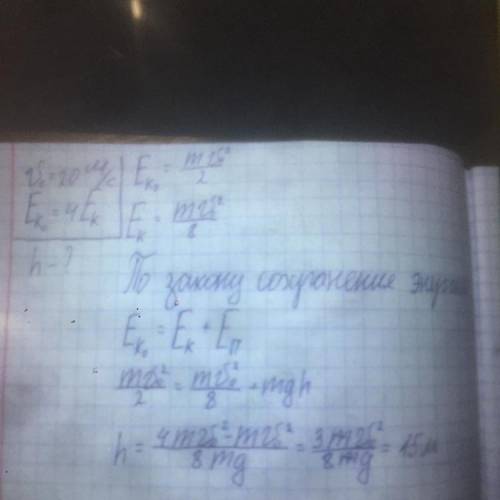 v₀ = 20 м/с
E_K₀ = 4E_K
h - ?
E_K₀ = mv₀²/2
E_K = mv₀²/8
По закону сохранение
E_K₀ = E_K + E_П
mv₀²/2 = mv₀²/8 + mgh
h = (4mv₀² - mv₀²)/8mg = 3mv₀²/8mg = 15 м